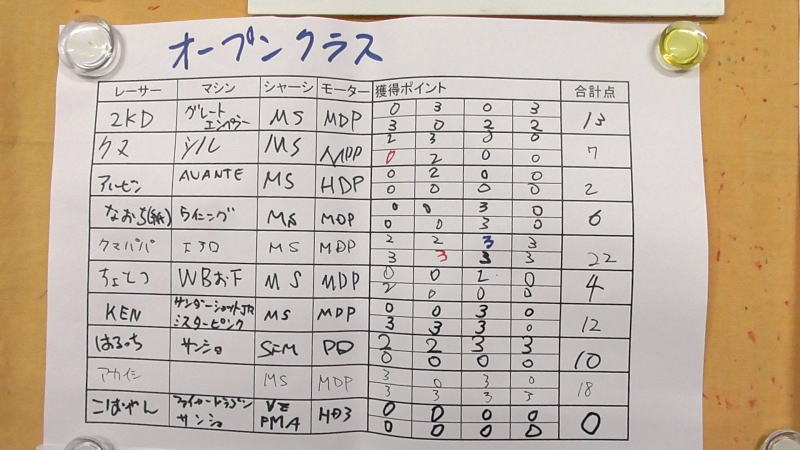 オープンクラス
レーサー マシン シャーシ モーター 獲得ポイント 合計点
2KD グレートエンペラー MS MDP 0 3 0 3 13
3 0 2 2
クス MS MDP 2 3 0 0 7
0 2 0 0
アルービン AVANTE MS HDP 0 2 0 0 2
0 0 0 0
なおち(紙) ライニング MS MDP 0 0 3 0 6
0 0 3 0
クマパパ MS MDP 2 2 3 3 22
3 3 3 3
ちぇてつ WBお下 MS MDP 0 0 2 0 4
2 0 0 0
KEN サンダーショットJr. ミスターピンク MS MDP 0 0 3 0 12
3 3 3 0
はるっち サンショ SFM PD 2 2 3 3 10
0 0 0 0
アカイシ MS MDP 3 0 3 0 18
3 3 3 3
こばやん ファイヤードラゴン VZ HD3 0 0 0 0 0
サンショ PMA 0 0 0 0